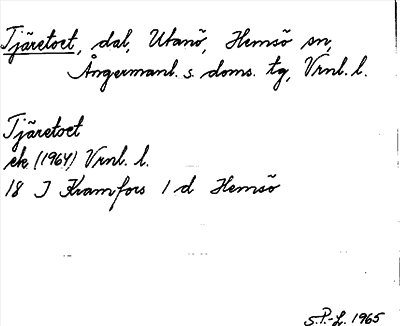 Tjäretoet, dal, Utanö, Hemsö sn,
Ångermanl. s. doms. tg, Vrnl. l.
Tjäretoet
ek (1964) Vrnl. l.
18 I Kramfors 1 d Hemsö
S.P.-L. 1965